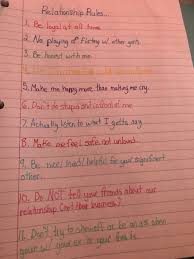 Relationship Rules...
1. Be loyal at all times
2. No playing or flirting w/ other girls.
3. Be honest with me.
5. Make me happy more than making me cry.
6. Don't do stupid and
7. Actually listen to what I gotta say.
8. Make me feel safe not unloved.
9. Be nice/ /helpful for your significant
other.
10. Do NOT tell your friends about our
relationship (not their business)
11. Don't try to show off or be an ass when
your w/ your ex or your friends.